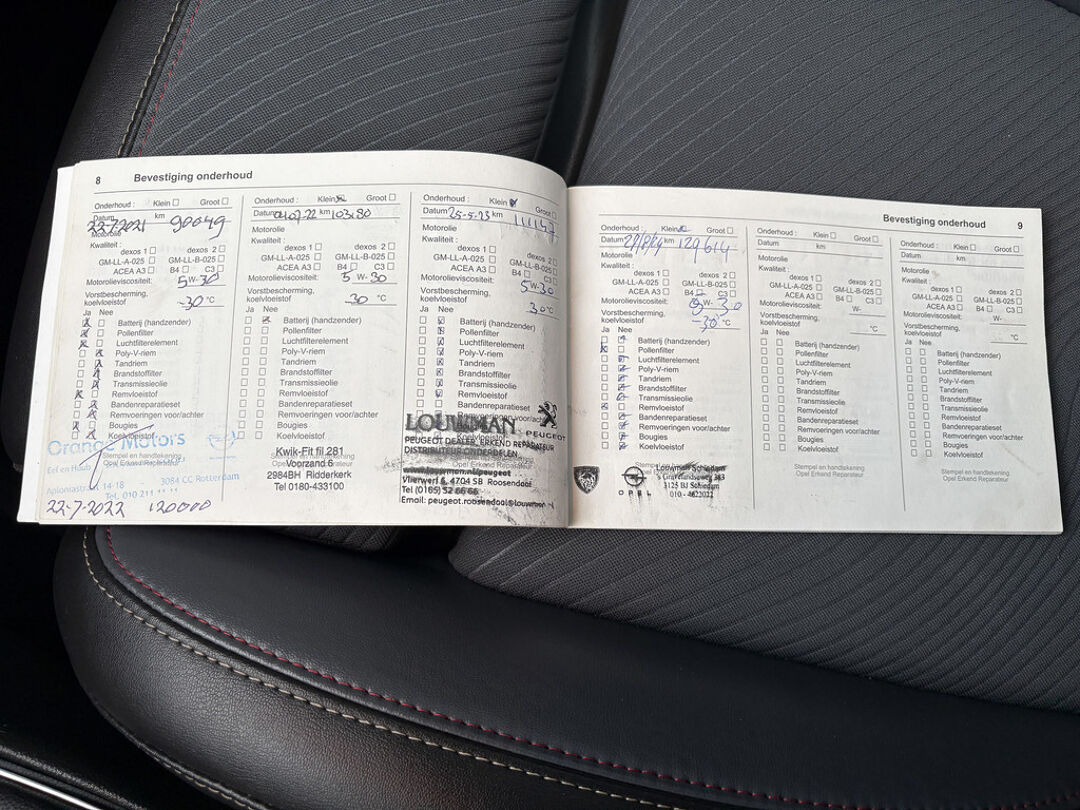 8 Bevestiging onderhoud
Onderhoud : Klein Groot
Datum 22-7-2021 km 90049
Motorolie
Kwaliteit :
dexos 1 dexos 2
GM-LL-A-025 GM-LL-B-025
ACEA A3 B4 C3
Motorolieviscositeit: 5 W-30
Vorstbescherming,
koelvloeistof -30 °C
Ja Nee
Batterij (handzender)
Pollenfilter
Luchtfilterelement
Poly-V-riem
Tandriem
Brandstoffilter
Transmissieolie
Remvloeistof
Bandenreparatieset
Remvoeringen voor/achter
Bougies
Koelvloeistof
Orange Motors
Stempel en handtekening
Opel Erkend Reparateur
Aploniastraat 14-18
3084 CC Rotterdam
22-7-2022 120000
Onderhoud : Klein Groot
Datum km
Motorolie
Kwaliteit :
dexos 1 dexos 2
GM-LL-A-025 GM-LL-B-025
ACEA A3 B4 C3
Motorolieviscositeit: 5 W-30
Vorstbescherming,
koelvloeistof 30 °C
Ja Nee
Batterij (handzender)
Pollenfilter
Luchtfilterelement
Poly-V-riem
Tandriem
Brandstoffilter
Transmissieolie
Remvloeistof
Bandenreparatieset
Remvoeringen voor/achter
Bougies
Koelvloeistof
Kwik-Fit fil 281
Voorzand 6
2984BH Ridderkerk
Tel 0180-433100
Onderhoud : Klein Groot
Datum 25-5-23 km 111147
Motorolie
Kwaliteit :
dexos 1 dexos 2
GM-LL-A-025 GM-LL-B-025
ACEA A3 B4 C3
Motorolieviscositeit: 5 W-30
Vorstbescherming,
koelvloeistof 30 °C
Ja Nee
Batterij (handzender)
Pollenfilter
Luchtfilterelement
Poly-V-riem
Tandriem
Brandstoffilter
Transmissieolie
Remvloeistof
Bandenreparatieset
Remvoeringen voor/achter
LOUWMAN
PEUGEOT
PEUGEOT DEALER, ERKEND REPARATEUR
DISTRIBUTEUR ONDERDELEN
www.louwman.nl/peugeot
Vlierwerf 6, 4704 SB Roosendaal
Tel (0165) 52 66 66
Email: peugeot.roosendaal@louwman
Bevestiging onderhoud 9
Onderhoud : Klein Groot
Datum km 129614
Motorolie
Kwaliteit :
dexos 1 dexos 2
GM-LL-A-025 GM-LL-B-025
ACEA A3 B4 C3
Motorolieviscositeit: W- 30
Vorstbescherming,
koelvloeistof -30 °C
Ja Nee
Batterij (handzender)
Pollenfilter
Luchtfilterelement
Poly-V-riem
Tandriem
Brandstoffilter
Transmissieolie
Remvloeistof
Bandenreparatieset
Remvoeringen voor/achter
Bougies
Koelvloeistof
OPEL
Louwman Schiedam
's Gravelandseweg 383
3125 BJ Schiedam
010 - 4622022
Onderhoud : Klein Groot
Datum km
Motorolie
Kwaliteit :
dexos 1 dexos 2
GM-LL-A-025 GM-LL-B-025
ACEA A3 B4 C3
Motorolieviscositeit: W-
Vorstbescherming,
koelvloeistof °C
Ja Nee
Batterij (handzender)
Pollenfilter
Luchtfilterelement
Poly-V-riem
Tandriem
Brandstoffilter
Transmissieolie
Remvloeistof
Bandenreparatieset
Remvoeringen voor/achter
Bougies
Koelvloeistof
Stempel en handtekening
Opel Erkend Reparateur
Onderhoud : Klein Groot
Datum km
Motorolie
Kwaliteit :
dexos 1 dexos 2
GM-LL-A-025 GM-LL-B-025
ACEA A3 B4 C3
Motorolieviscositeit: W-
Vorstbescherming,
koelvloeistof °C
Ja Nee
Batterij (handzender)
Pollenfilter
Luchtfilterelement
Poly-V-riem
Tandriem
Brandstoffilter
Transmissieolie
Remvloeistof
Bandenreparatieset
Remvoeringen voor/achter
Bougies
Koelvloeistof
Stempel en handtekening
Opel Erkend Reparateur